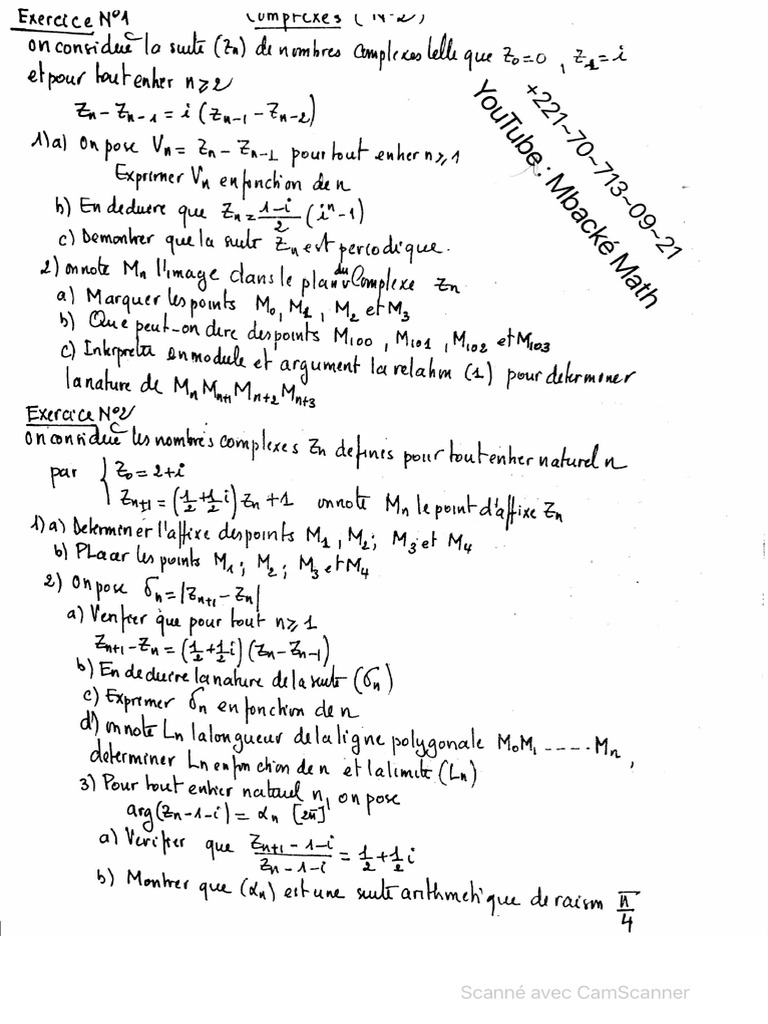 Exercice N°1 Complexes (N°2)
on considère la suite (Zn) de nombres complexes telle que Z₀=0 , Z₁=i
et pour tout entier n≥2
Zn - Zn-1 = i (Zn-1 - Zn-2)
1) a) On pose Vn = Zn - Zn-1 pour tout entier n≥1
Exprimer Vn en fonction de n
b) En deduire que Zn = (1-i)/2 (iⁿ-1)
c) Demontrer que la suite Zn est periodique.
2) on note Mn l'image dans le plan du Complexe Zn
a) Marquer les points M₀, M₁ , M₂ et M₃
b) Que peut-on dire des points M100 , M101 , M102 et M103
c) Interpreter en module et argument la relation (1) pour determiner
la nature de Mn Mn+1 Mn+2 Mn+3
Exercice N°2
on considère les nombres complexes Zn definis pour tout entier naturel n
par { Z₀ = 2+i
Zn+1 = (1/2 + 1/2 i) Zn + 1 on note Mn le point d'affixe Zn
1) a) Determiner l'affixe des points M₁ , M₂ ; M₃ et M₄
b) Placer les points M₁ ; M₂ ; M₃ et M₄
2) On pose δn = |Zn+1 - Zn|
a) Verifier que pour tout n≥1
Zn+1 - Zn = (1/2 + 1/2 i) (Zn - Zn-1)
b) En deduire la nature de la suite (δn)
c) Exprimer δn en fonction de n
d) on note Ln la longueur de la ligne polygonale M₀M₁ ----- Mn ,
determiner Ln en fonction de n et la limite (Ln)
3) Pour tout entier naturel n, on pose
arg(Zn-1-i) = αn [2π]
a) Verifier que (Zn+1 - 1 - i)/(Zn - 1 - i) = 1/2 + 1/2 i
b) Montrer que (αn) est une suite arithmetique de raison π/4
+221~70~713~09~21
YouTube: Mbacké Math
Scanné avec CamScanner